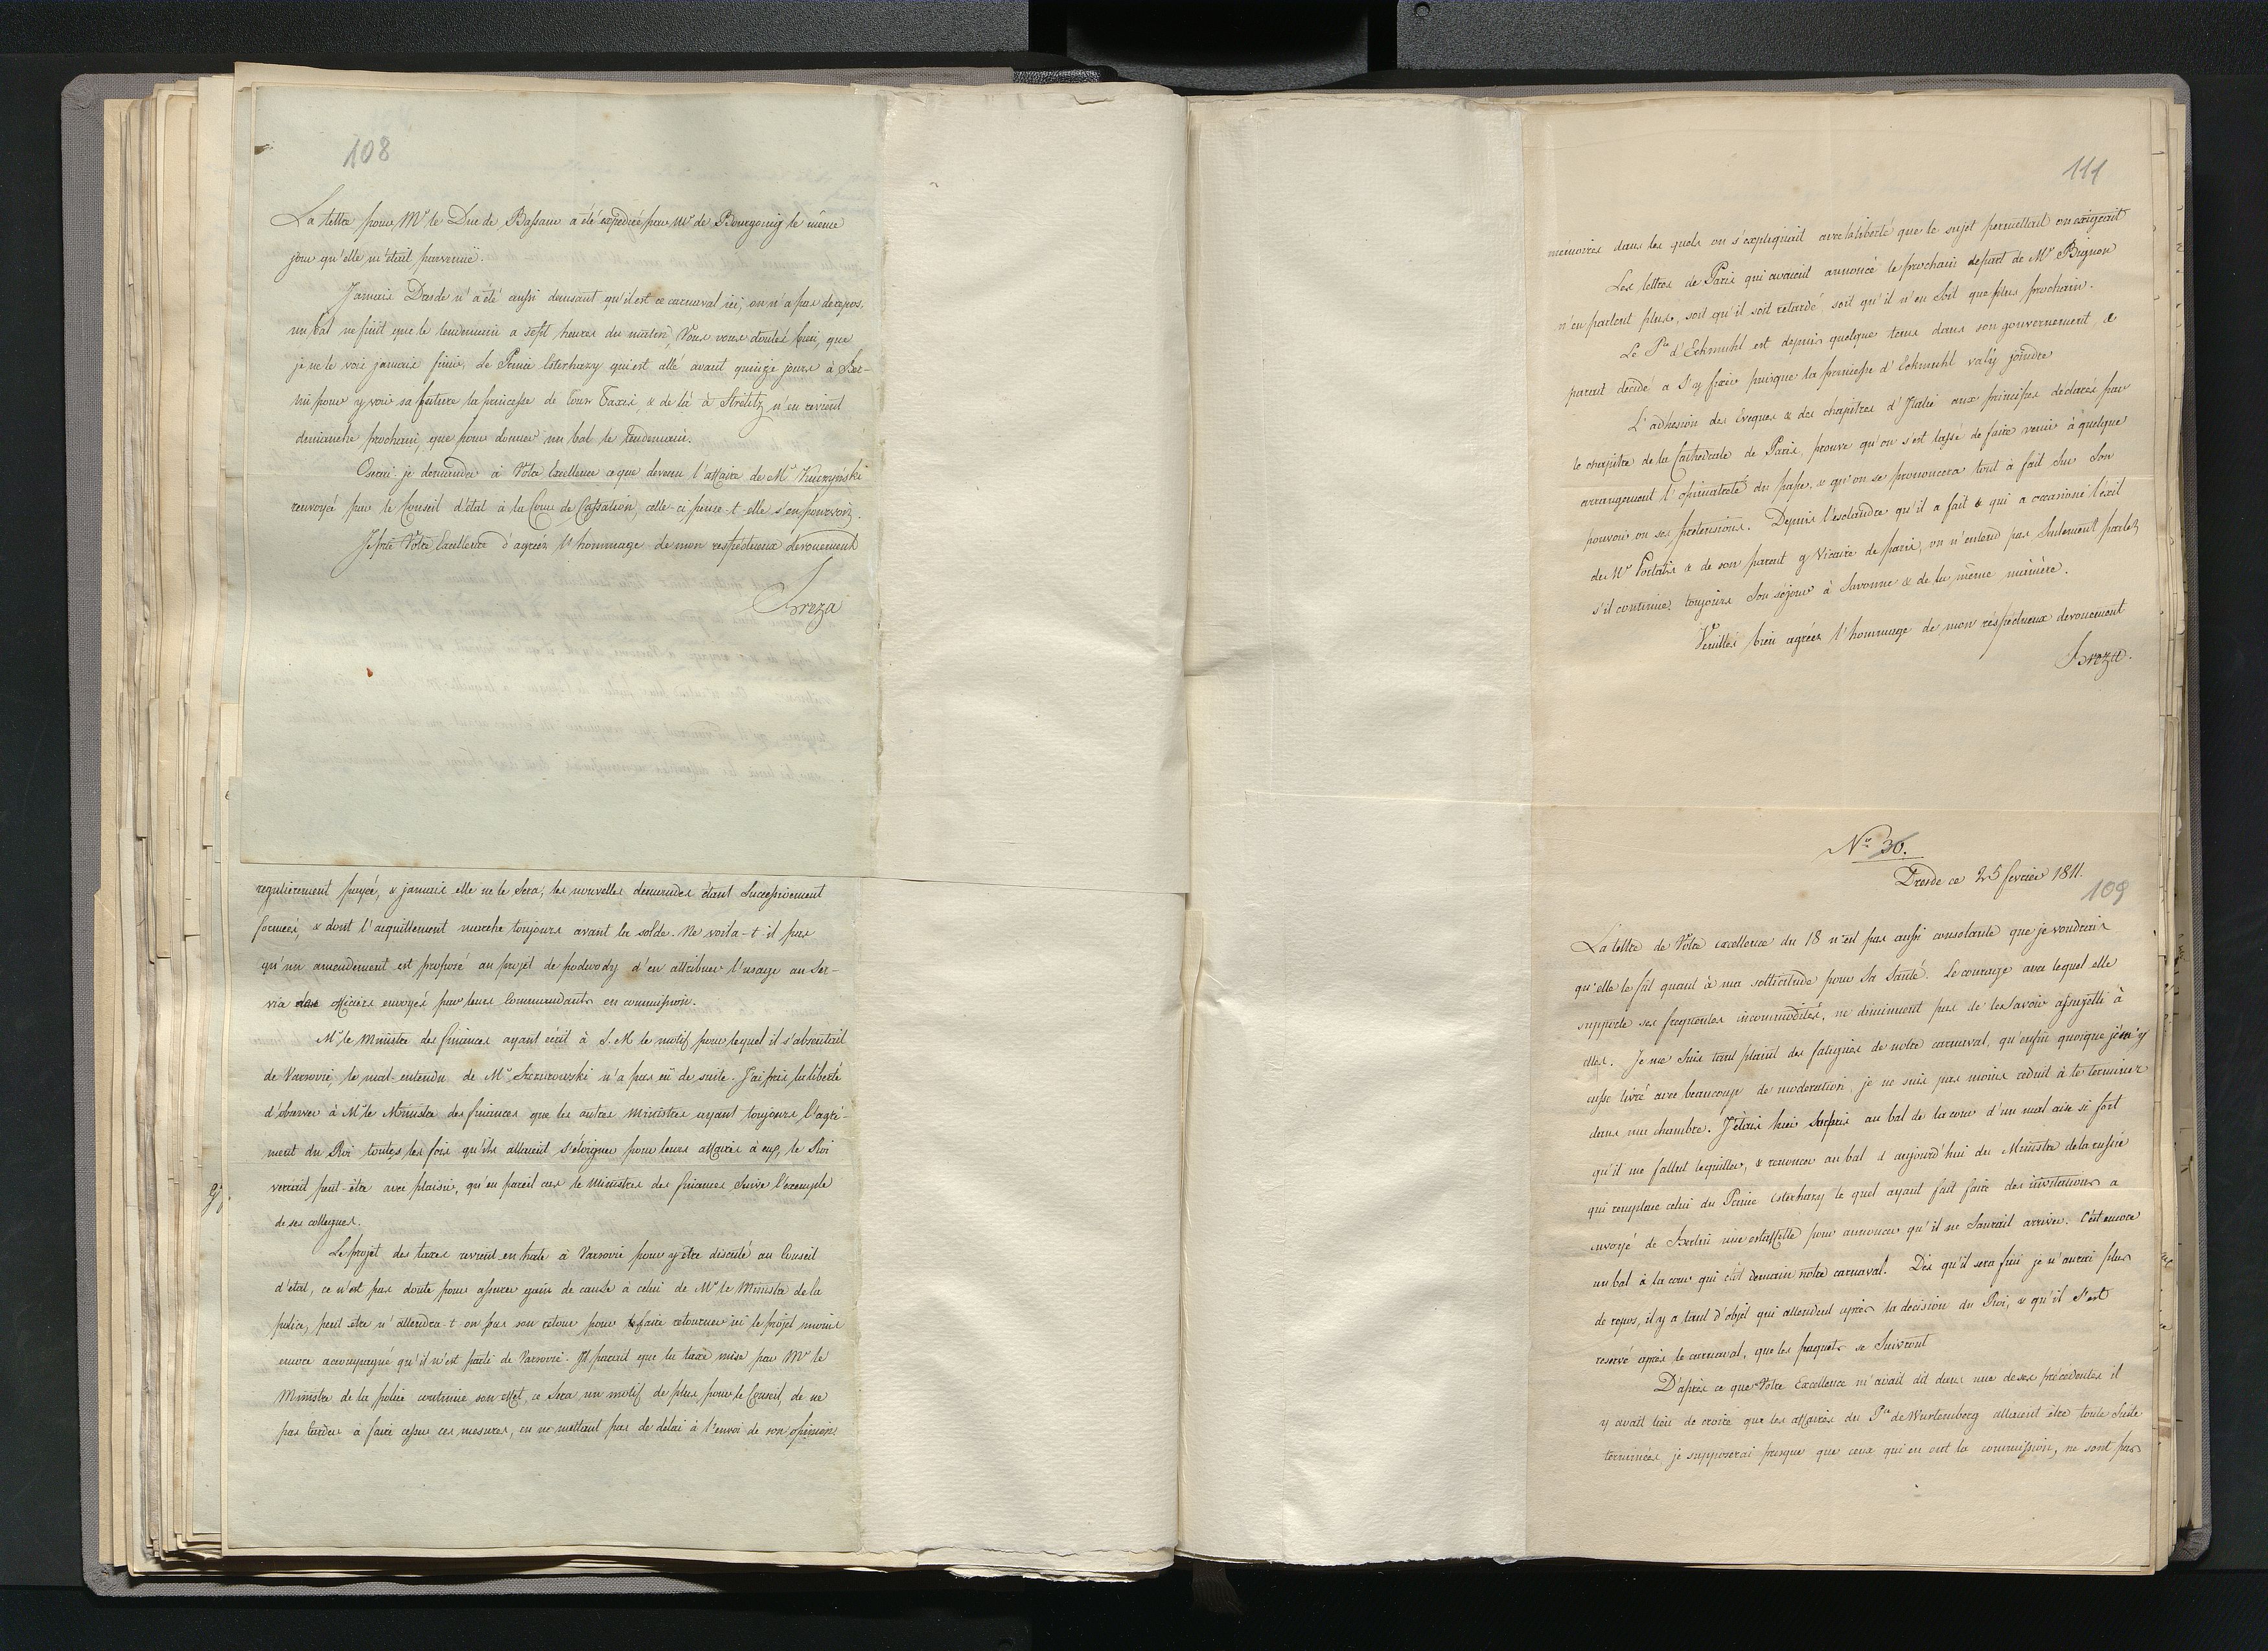 108
La lettre pour Mr le Duc de Bassano a été expediée par Mr de Bourgoing le même
jour qu'elle m'étoit parvenuë.
Jamais Dresde n'a été aussi dansant, qu'il est ce carnaval ici, on n'a pas de repos,
un bal ne finit que le lendemain a sept heures du matin, Vous vous doutés bien, que
je ne le vois jamais finir. Le Prince Esterhazy qui est allé avant quinze jours à Ber-
lin pour y voir sa future la princesse de Tour Taxis, & de là à Strelitz n'en revient
dimanche prochain, que pour donner un bal le lendemain.
Oserai-je demander à Votre Excellence ce que devient l'affaire de Mr Kuczyński
renvoyé par le Conseil d'état à la Cour de Cassation, celle-ci pense-t-elle s'en pourvoir.
Je prie Votre Excellence d'agréer l'hommage de mon respectueux devouement
Breza
regulierement payée, & jamais elle ne le sera, les nouvelles demandes étant successivement
formées, & dont l'acquittement marche toujours avant la solde. Ne voila-t-il pas
qu'un amendement est proposé au projet de podwody d'en attribuer l'usage au ser-
vice des officiers envoyés par leurs Commandants en commission.
Mr le Ministre des finances ayant écrit à S. M le motif pour lequel il s'absentait
de Varsovie, le mal-entendu de Mr Szczurowski n'a pas eû de suite. J'ai pris la liberté
d'observer à Mr le Ministre des finances que les autres Ministres ayant toujours l'agré-
ment du Roi toutes les fois qu'ils allaient s'éloigner pour leurs affaires à eux, le Roi
verrait peut-être avec plaisir, qu'en pareil cas le Ministre des finances suive l'exemple
de ses collegues.
Le projet des taxes revient en hate à Varsovie pour y être discuté au Conseil
d'état, ce n'est pas doute pour assurer gain de cause à celui de Mr le Ministre de la
police, peut être n'attendra-t-on pas son retour pour faire retourner ici le projet moins
encore accompagné qu'il n'est parti de Varsovie. Il parait que la taxe mise par Mr le
Ministre de la police continue son effet, ce sera un motif de plus, pour le Conseil, de ne
pas tarder à faire cesser ces mesures, en ne mettant pas de delai à l'envoi de son opinion
111
memoires dans les quels on s'expliquait avec la liberté que le sujet permettait ou exigeait
Les lettres de Paris qui avaient annoncé le prochain depart de Mr Bignon
n'en parlent plus, soit qu'il soit retardé soit qu'il n'en soit que plus prochain.
Le Pce d'Eckmuhl est depuis quelque tems dans son gouvernement, &
parait decidé a s'y fixer puisque la princesse d'Eckmuhl va l'y joindre
L'adhesion des Evêques & des chapitres d'Italie aux principes declarés par
le chapitre de la Cathedrale de Paris, prouve qu'on s'est lassé de faire venir à quelque
arrangement l'opiniatreté du pape, & qu'on se prononcera tout à fait sur son
pouvoir ou ses pretensions. Depuis l'esclandre qu'il a fait & qui a occasioné l'exil
de Mr Portalis & de son parent g Vicaire de paris, on n'entend pas seulement parler
s'il continue toujours son sejour à Savonne & de la même manière.
Veuillés bien agréer l'hommage de mon réspectueux devouement
Breza.
Nro 36.
Dresde ce 25 fevrier 1811.
109
La lettre de Votre excellence du 18 n'est pas aussi consolante que je voudrais
qu'elle le fût quant à ma sollicitude pour sa santé. Le courage avec lequel elle
supporte ses frequentes incommodités, ne diminuent pas de les savoir assujetti à
elles. Je me suis tant plaint des fatigues de notre carnaval, qu'enfin quoique je m'y
eusse livré avec beaucoup de moderation, je ne suis pas moins reduit à le terminer
dans ma chambre. J'étais hier surpris au bal de la cour d'un mal aise si fort
qu'il me fallut le quitter, & renoncer au bal d aujourd'hui du Ministre de la russie
qui remplace celui du Prince Esterhazy le quel ayant fait faire des invitations a
envoyé de Berlin une estaffette pour annoncer qu'il ne saurait arriver. C'est encore
un bal à la cour qui clôt demain notre carnaval. Dès qu'il sera fini je n'aurai plus
de repos, il y a tant d'objet qui attendent après la decision du Roi, & qu'il s'est
reservé après le carnaval, que les paquets se suivront
D'après ce que Votre Excellence m'avait dit dans une de ses précédentes il
y avait lieu de croire que les affaires du Pce de Wurtemberg allaient être toute suite
terminées, je supposerai presque que ceux qui en ont la commission, ne sont pas